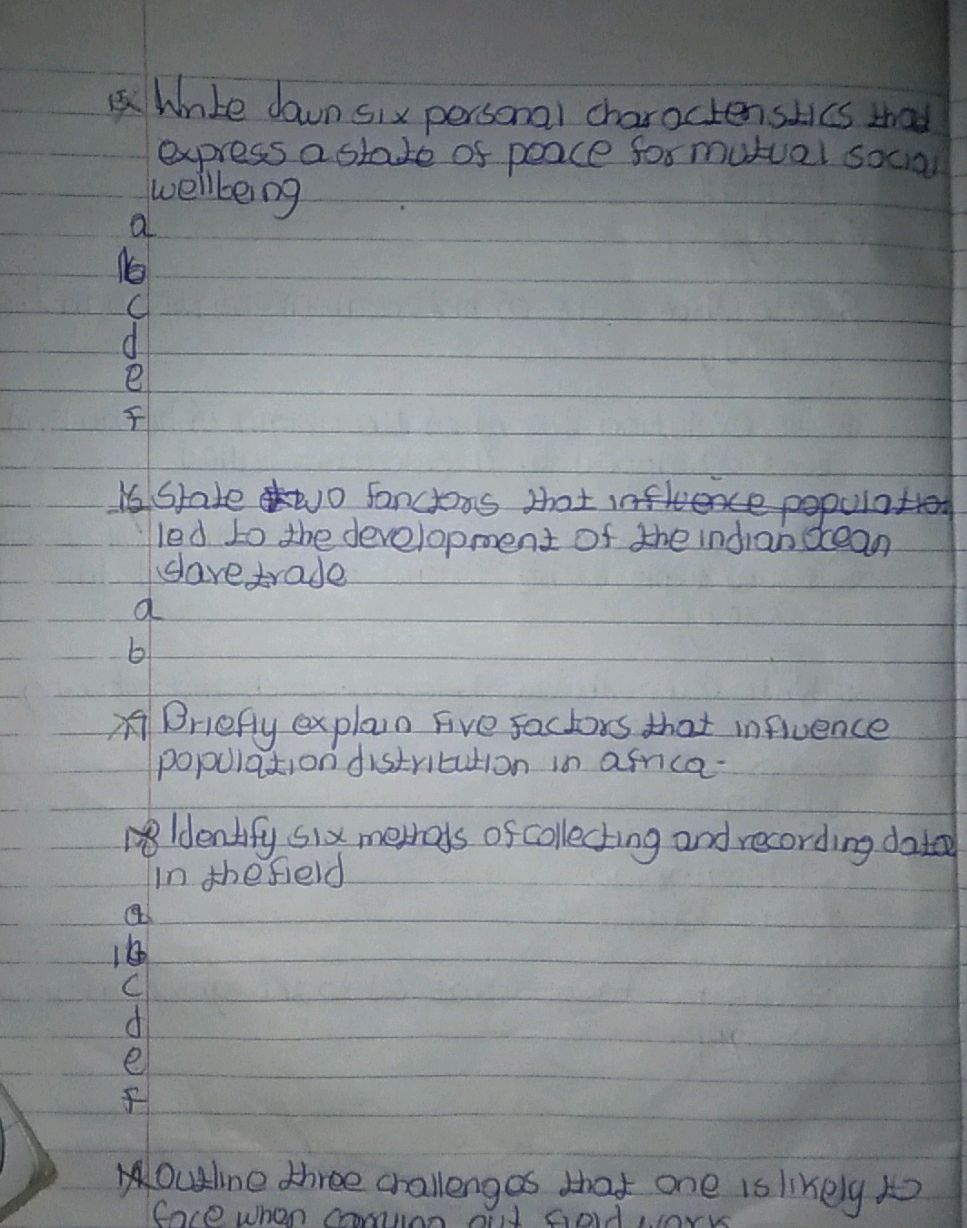 15 Write down six personal characteristics that
express a state of peace for mutual social
wellbeing
a
b
c
d
e
f
16 State two fanctors that influence population
led to the development of the indian Ocean
slave trade
a
b
17 Briefly explain five factors that influence
population distribution in africa.
18 Identify six methods of collecting and recording data
in the field
a
b
c
d
e
f
19 Outline three challenges that one is likely to
face when carrying out field work